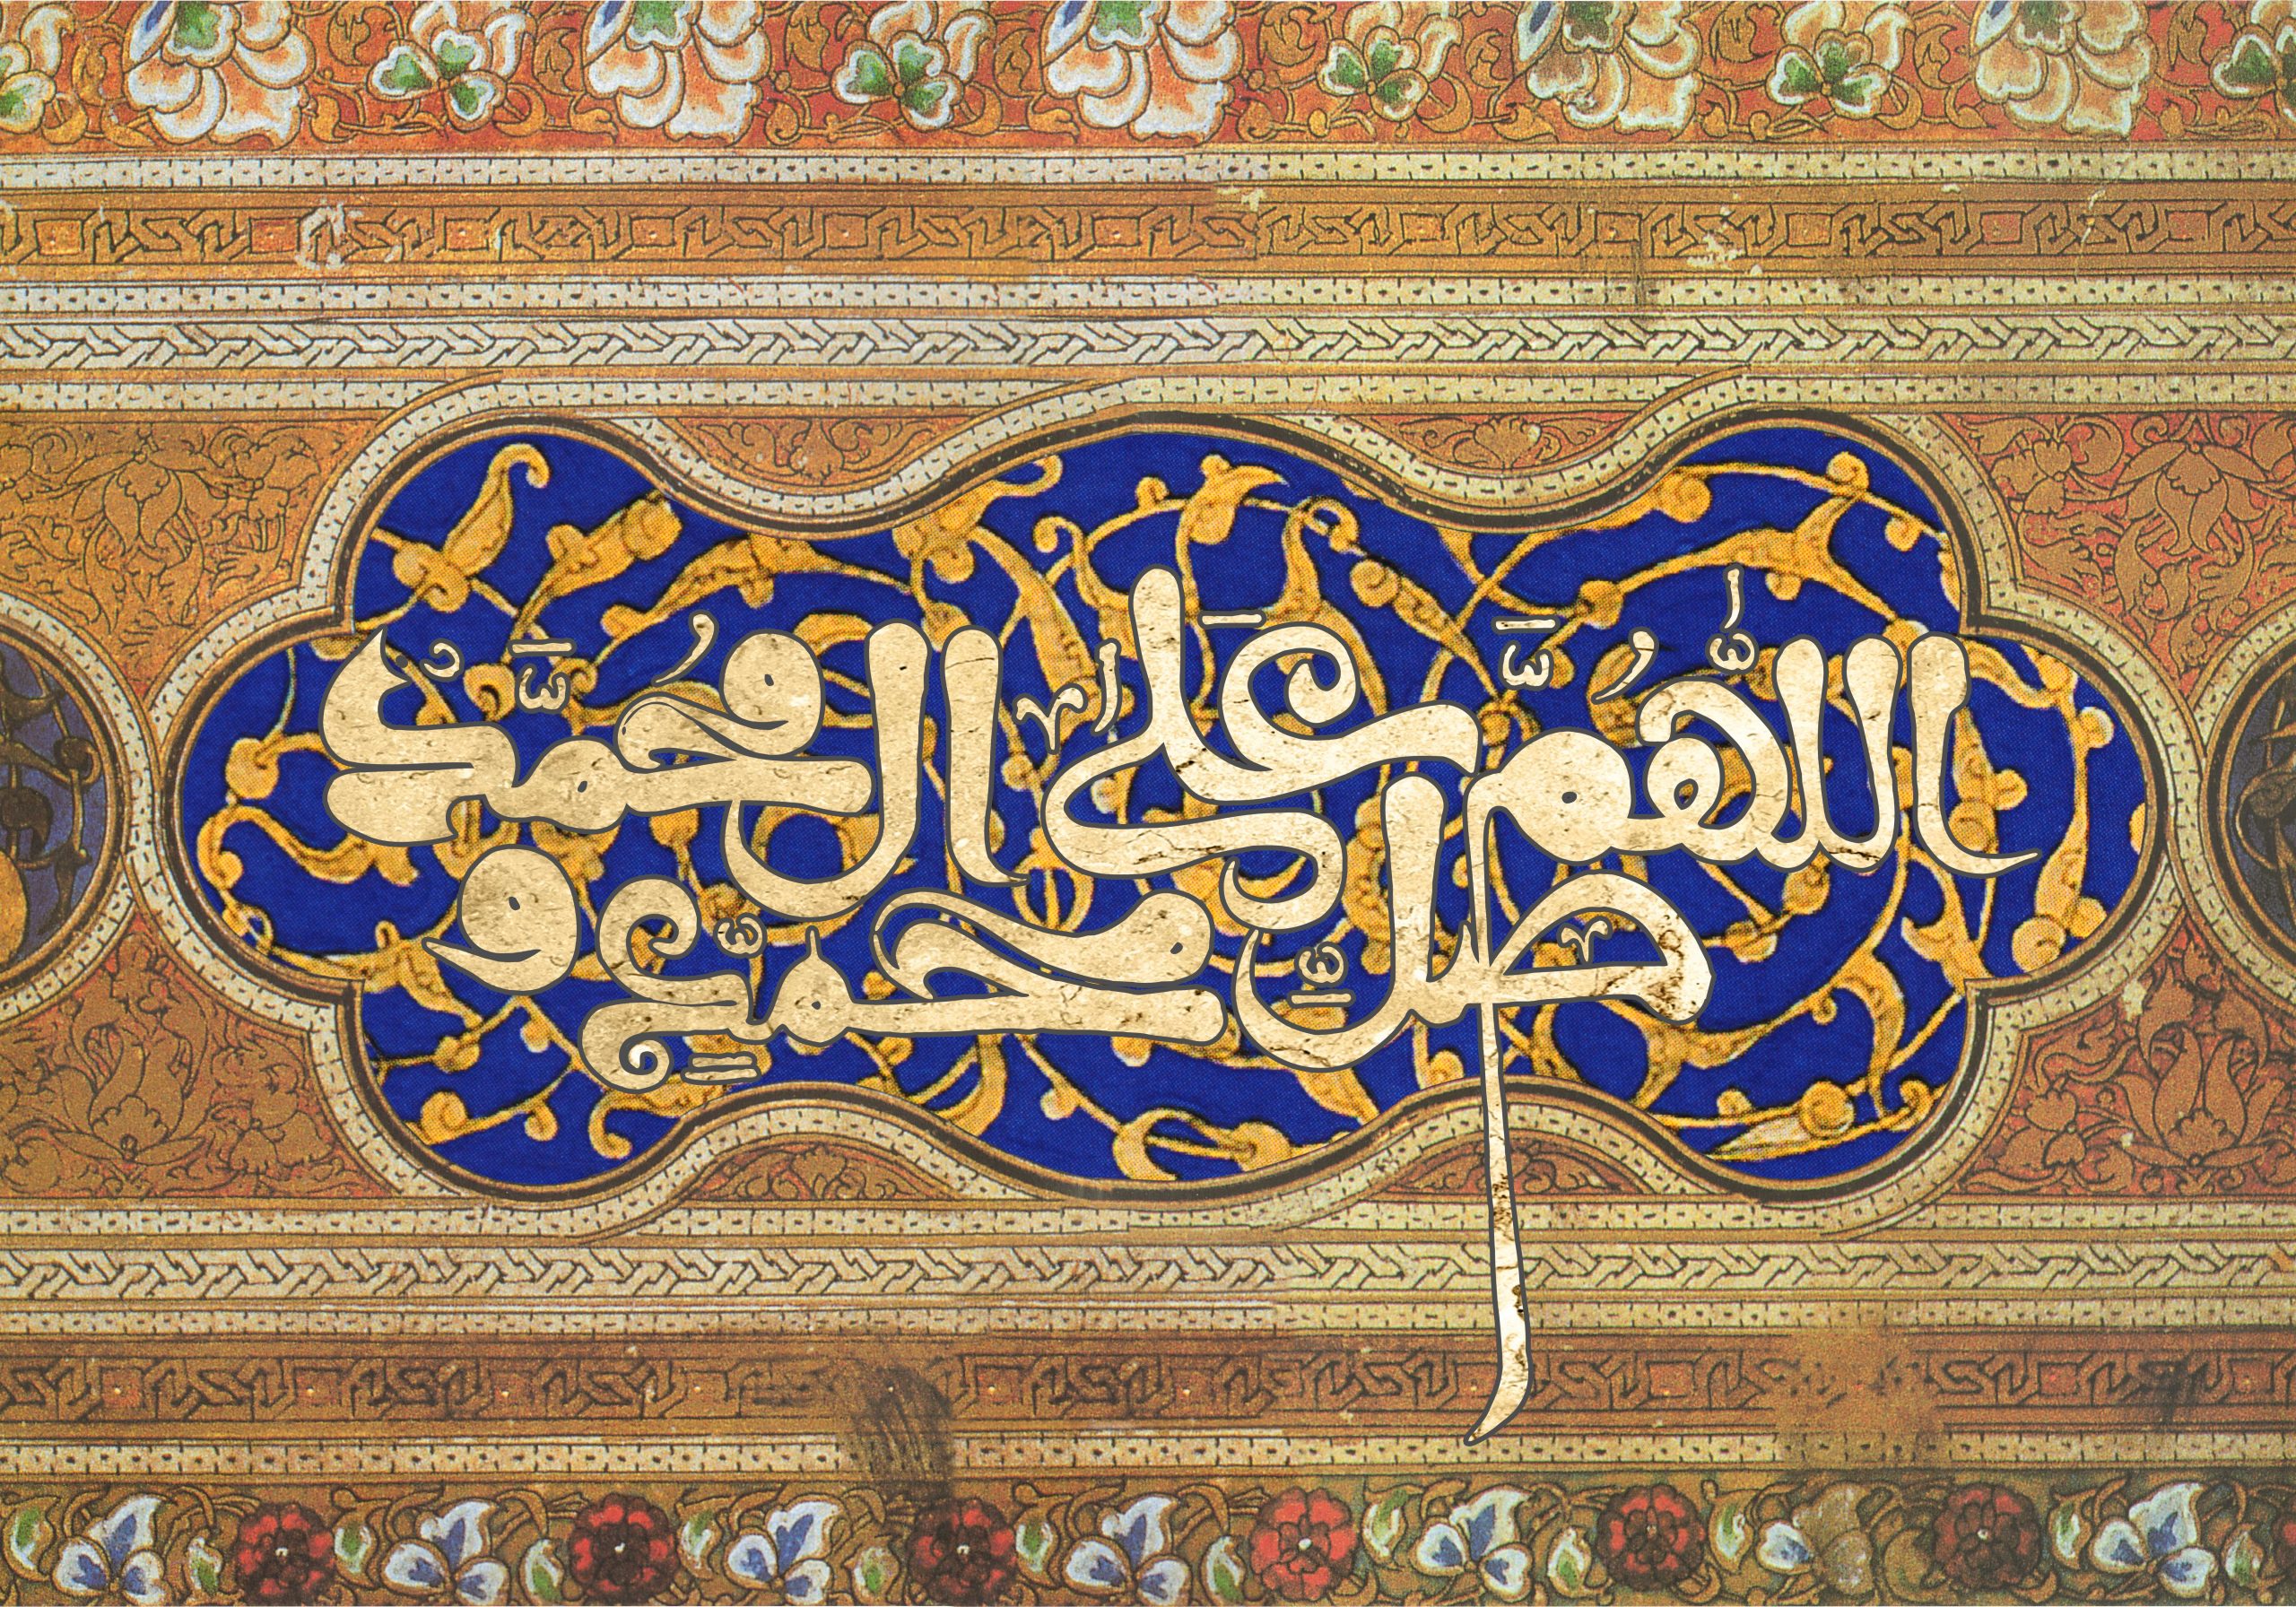 اللهُمَّ صلِّ على محمّدٍ و ال محمّد